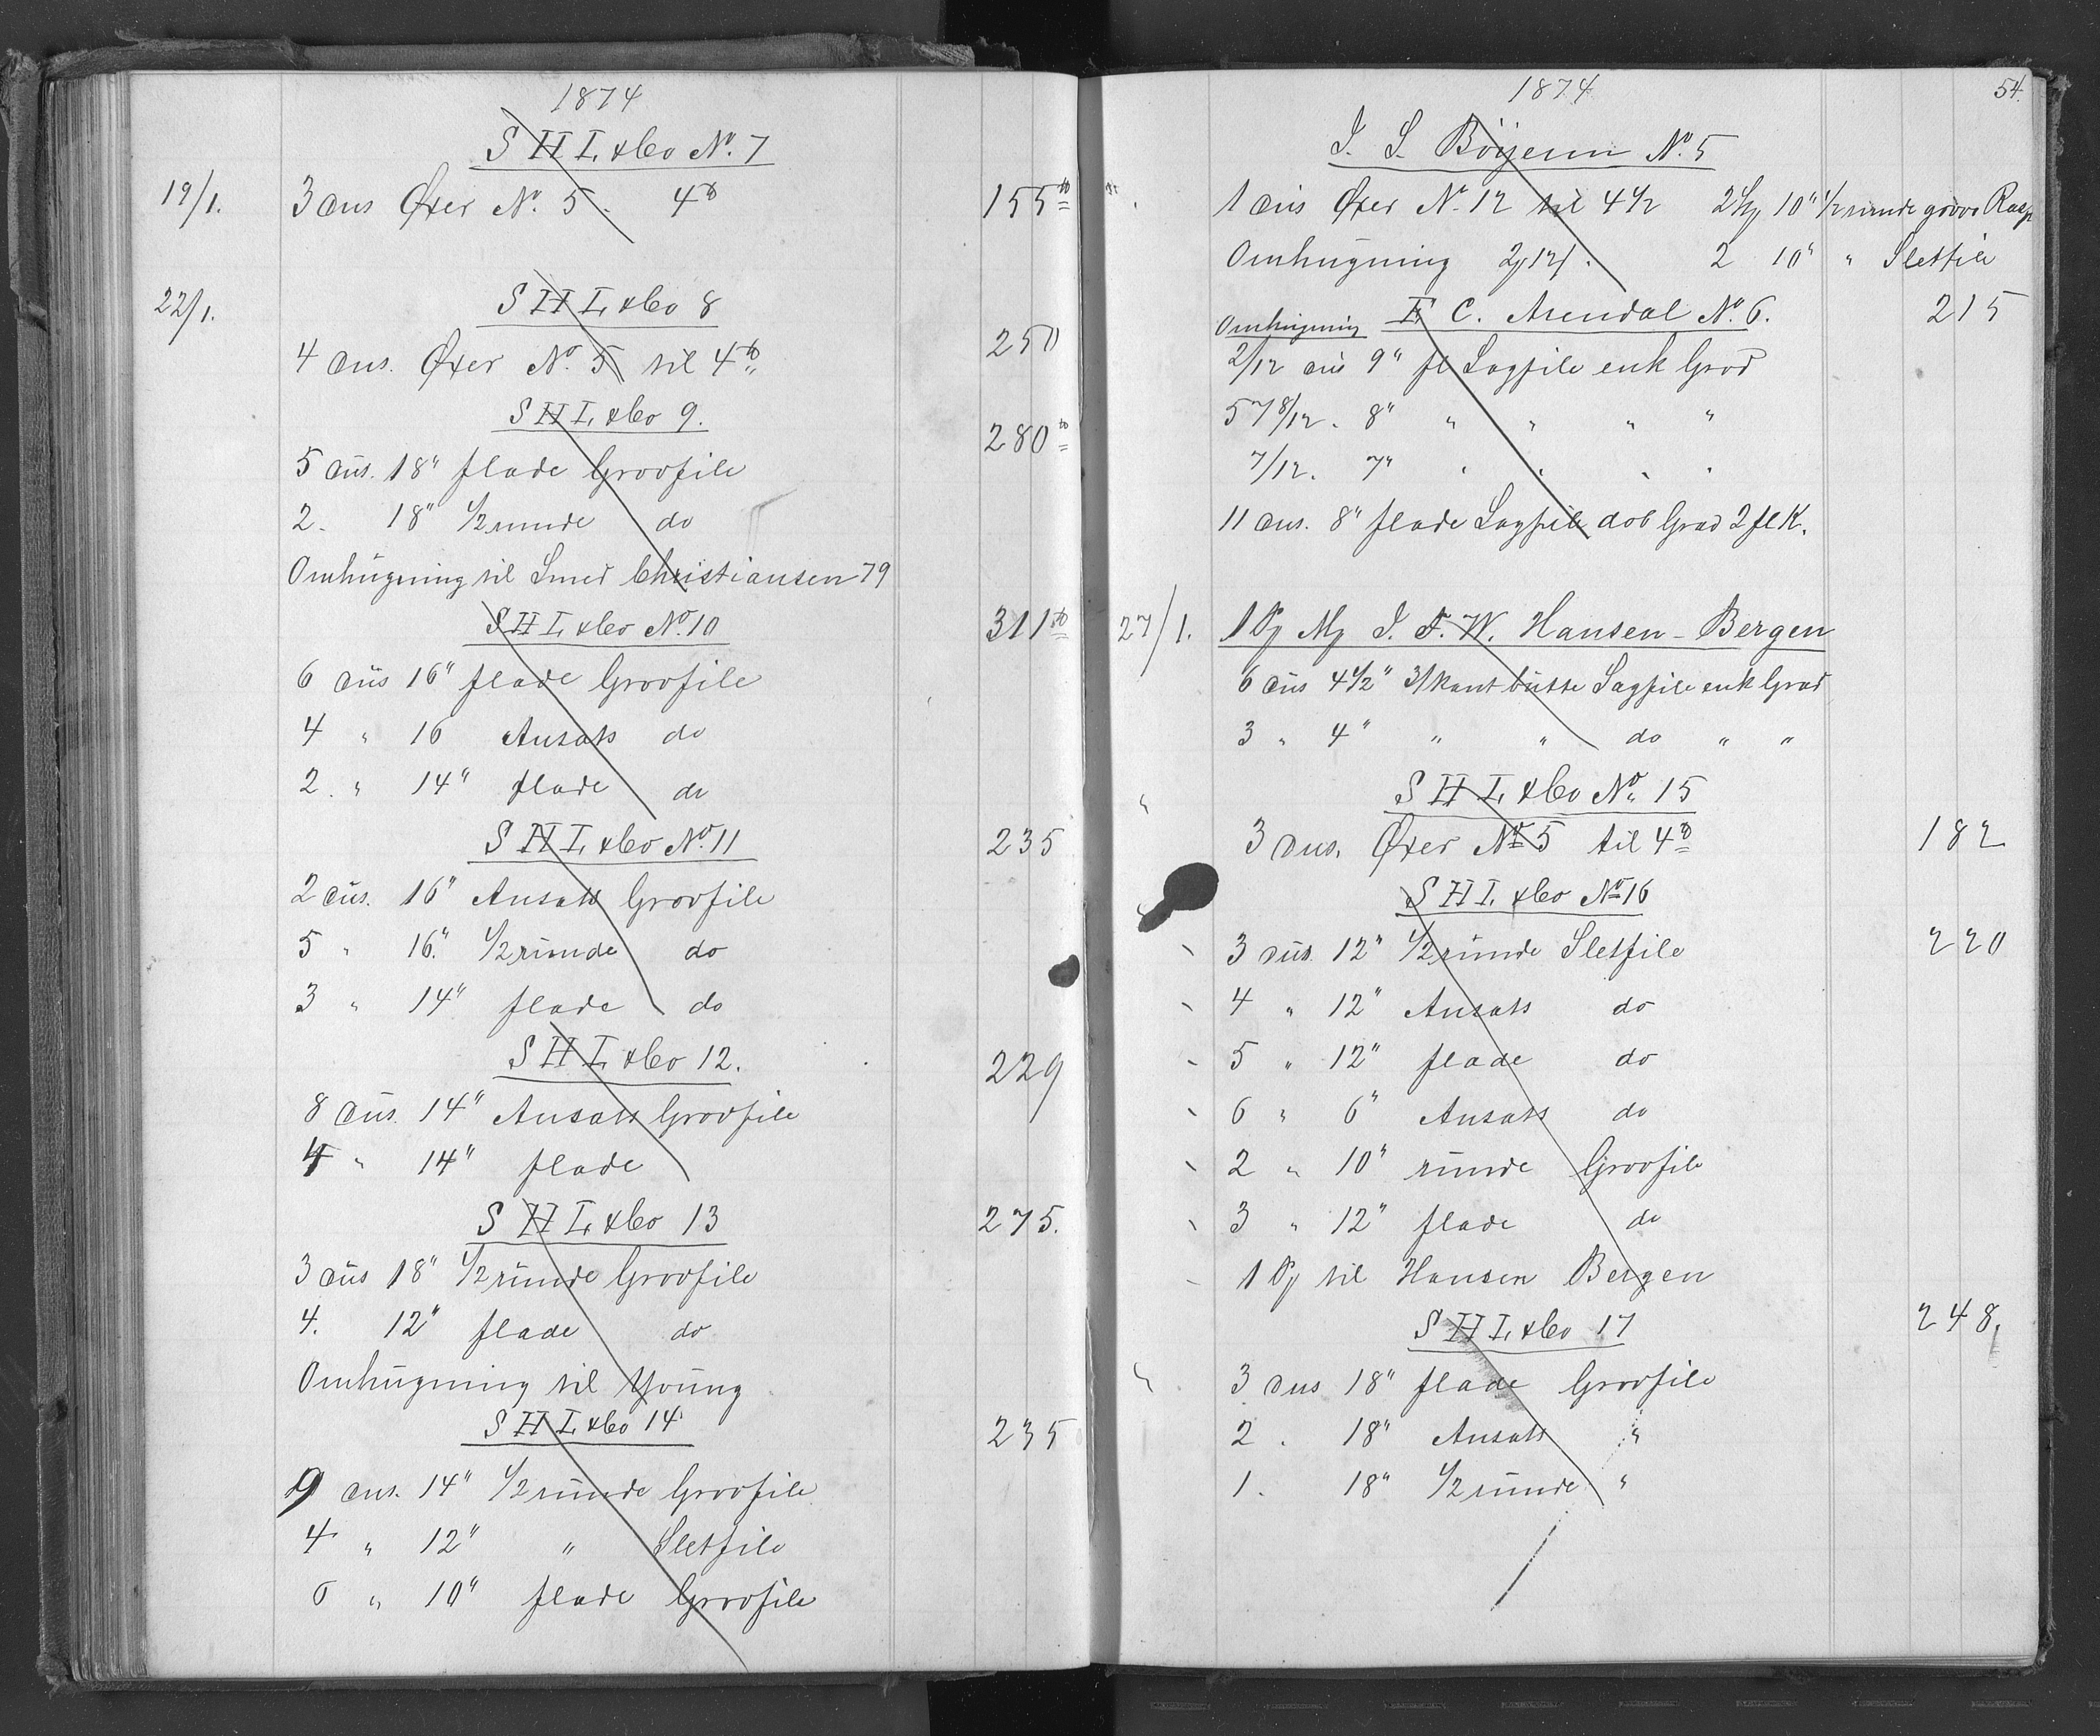 1874
S H L & Co No. 7
19/1. 3 dus Øxer No. 5. 4 tb 155 tb
22/1. S H L & Co 8
4 dus. Øxer No. 5 til 4 tb 250
S H L & Co 9. 280 tb
5 dus. 18" flade Grovfile
2. 18" 1/2 runde do
Omhugning til Smed Christiansen 79
S H L & Co No. 10 311 tb
6 dus 16" flade Grovfile
4 " 16 Ansats do
2. " 14" flade do
S H L & Co No. 11 235
2 dus. 16" Ansats Grovfile
5 " 16." 1/2 runde do
3 " 14" flade do
S H L & Co 12. 229
8 dus. 14" Ansats Grovfile
4 " 14" flade
S H L & Co 13 275.
3 dus 18" 1/2 runde Grovfile
4. 12" flade do
Omhugning til Young
S H L & Co 14 235
9 dus. 14" 1/2 runde Grovfile
4 " 12" " Sletfile
6 " 10" flade Grovfile
1874 54.
No. 5
1 dus Øxer No. 12 til 4 1/2 10" 1/2 runde grove Rasp
Omhugning 2/12. 2 10" " Sletfile
Omhugning C. Arendal No. 6. 215
2/12 dus 9" fl Sagfile enk Grad
5 7 8/12. 8" " " " "
7/12. 7" " " " "
11 dus. 8" flade Sagfile dob Grad 2 fl K.
27/1. 1 Pk Mk J. F. W. Hansen - Bergen
6 dus 4 1/2" 3/kant butte Sagfile enk Grad
3 " 4" " " do " "
S H L & Co No. 15
3 dus. Øxer No 5 til 4 tb 182
S H L & Co No 16
3 dus. 12" 1/2 runde Sletfile 220
4 " 12" Ansats do
5 " 12" flade do
6 " 6" Ansats do
2 " 10" runde Grovfile
3 " 12" flade do
1 Pk til Hansen Bergen
S H L & Co 17 248.
3 dus 18" flade Grovfile
2. 18" Ansats "
1. 18" 1/2 runde "